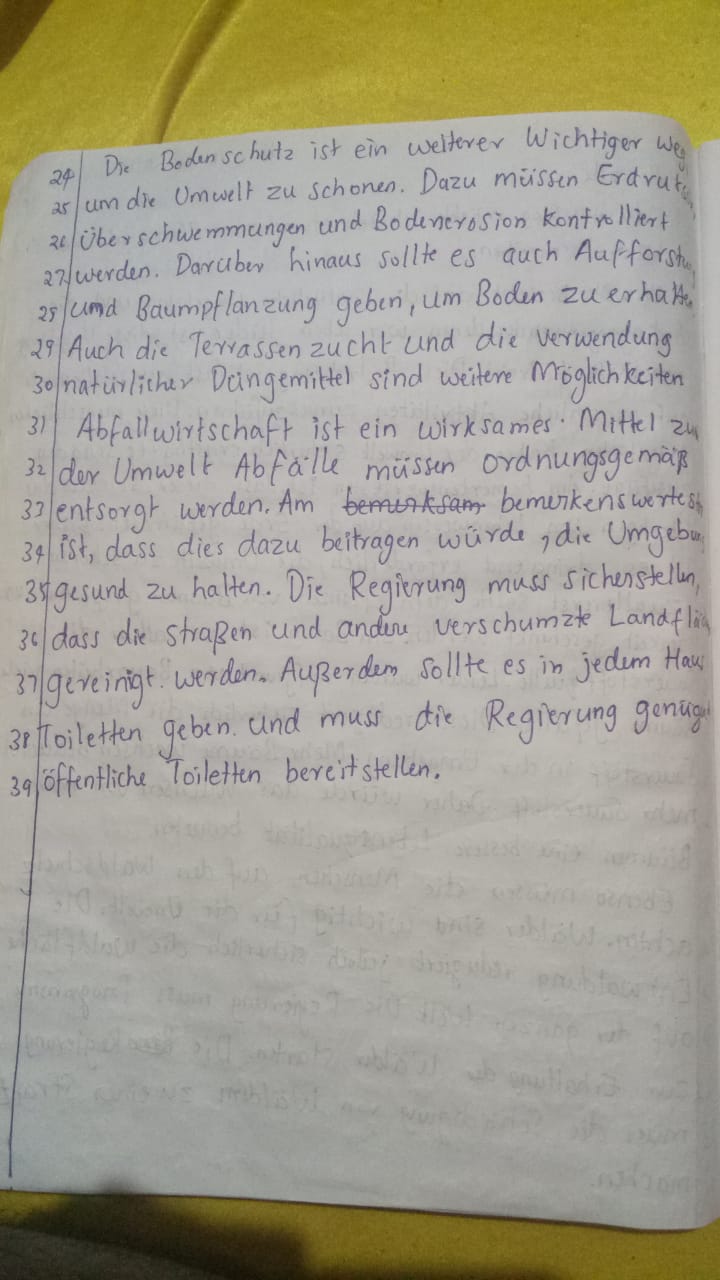 24 Die Bodenschutz ist ein weiterer Wichtiger weg
25 um die Umwelt zu schonen. Dazu müssen
26 Überschwemmungen und Bodenerosion kontrolliert
27 werden. Darüber hinaus sollte es auch
28 und Baumpflanzung geben, um Boden zu
29 Auch die Terrassenzucht und die verwendung
30 natürlicher Düngemittel sind weitere Möglichkeiten
31 Abfallwirtschaft ist ein wirksames Mittel
32 der Umwelt Abfälle müssen ordnungsgemäß
33 entsorgt werden. Am bemerksam
34 ist, dass dies dazu beitragen würde, die
35 gesund zu halten. Die Regierung muss sicherstellen,
36 dass die straßen und andere verschumzte
37 gereinigt werden. Außerdem sollte es in jedem Haus
38 Toiletten geben. und muss die Regierung
39 öffentliche Toiletten bereitstellen.